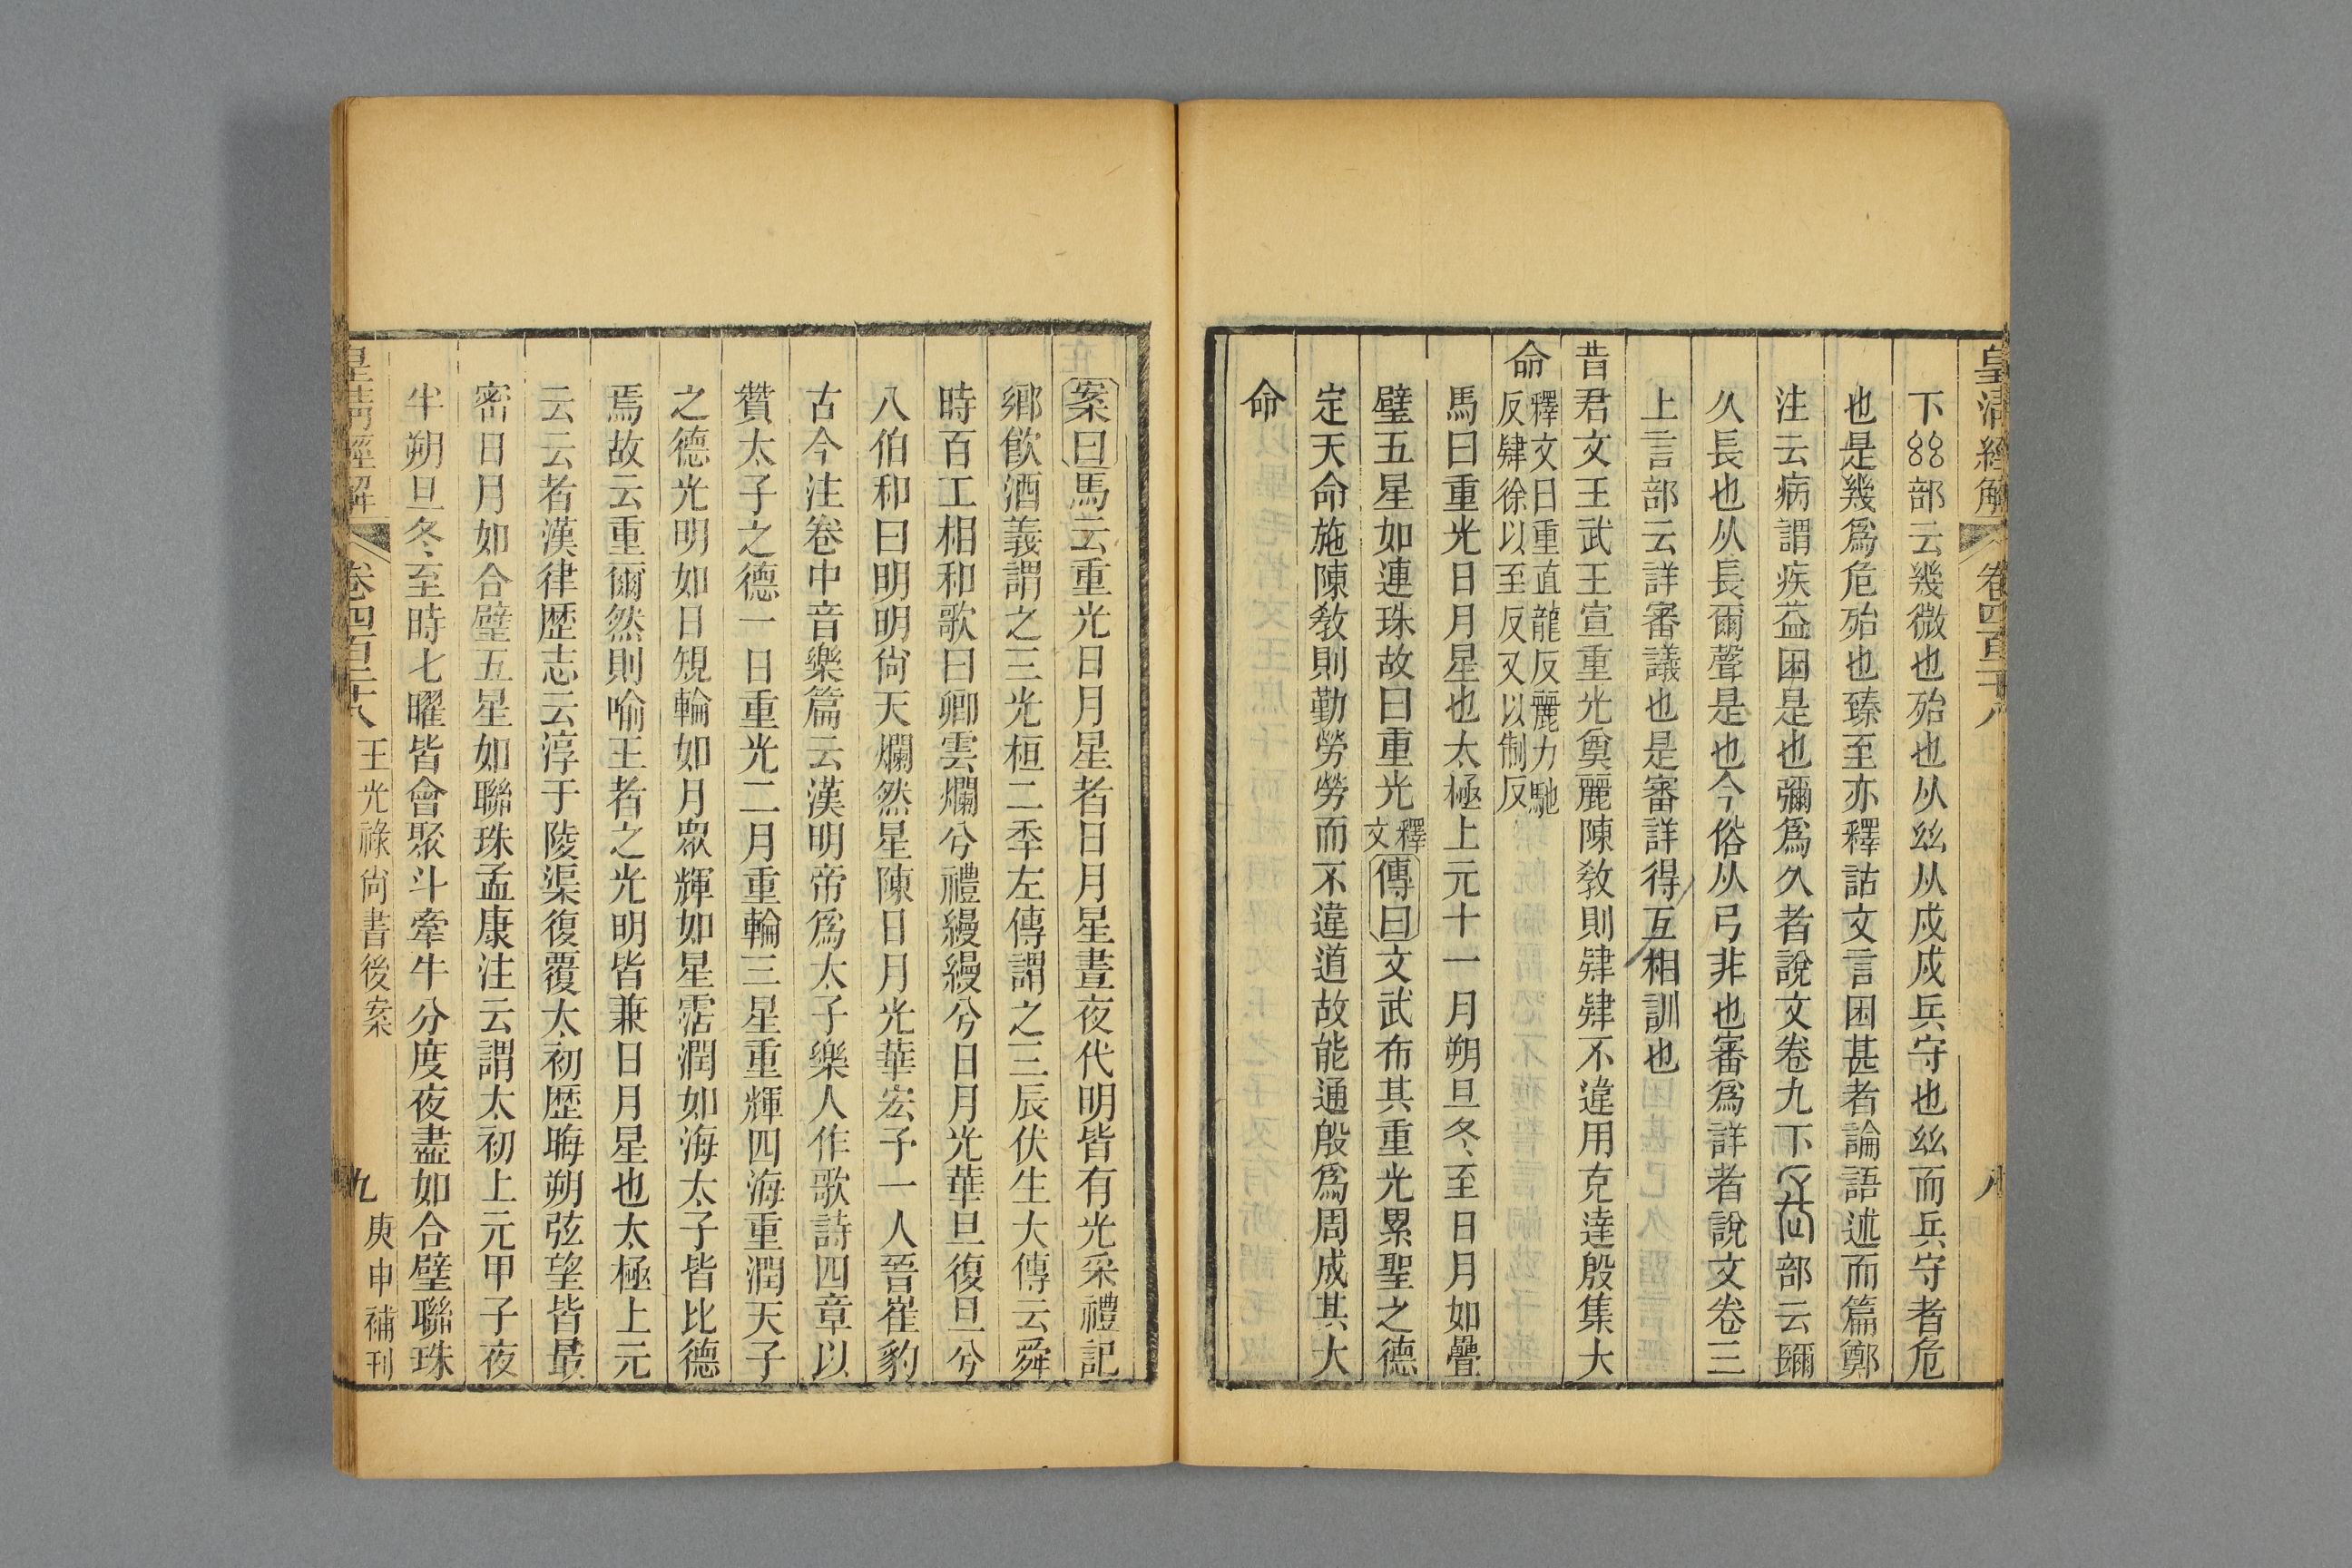 皇清經解 卷四百二十八 八
下部云幾微也殆也从𢆶从戍戍兵守也𢆶而兵守者危
也是幾爲危殆也臻至亦釋詁文言困甚者論語述而篇鄭
注云病謂疾益困是也彌爲久者說文卷九下部云镾
久長也从長爾聲是也今俗从弓非也審爲詳者說文卷三
上言部云詳審議也是審詳得互相訓也
昔君文王武王宣重光奠麗陳敎則肄肄不違用克達殷集大
命釋文曰重直龍反麗力馳反肄徐以至反又以制反
馬曰重光日月星也太極上元十一月朔旦冬至日月如疊
璧五星如連珠故曰重光釋文傳曰文武布其重光累聖之德
定天命施陳敎則勤勞勞而不違道故能通殷爲周成其大
命
案曰馬云重光日月星者日月星晝夜代明皆有光采禮記
鄉飮酒義謂之三光桓二秊左傳謂之三辰伏生大傳云舜
時百工相和歌曰卿雲爛兮禮縵縵兮日月光華旦復旦兮
八伯和曰明明尙天爛然星陳日月光華宏予一人晉崔豹
古今注卷中音樂篇云漢明帝爲太子樂人作歌詩四章以
贊太子之德一日重光二月重輪三星重輝四海重潤天子
之德光明如日規輪如月衆輝如星霑潤如海太子皆比德
焉故云重爾然則喻王者之光明皆兼日月星也太極上元
云云者漢律歷志云淳于陵渠復覆太初歷晦朔弦望皆最
密日月如合璧五星如聯珠孟康注云謂太初上元甲子夜
半朔旦冬至時七曜皆會聚斗牽牛分度夜盡如合璧聯珠
皇清經解 卷四百二十八 王光祿尙書後案 九 庚申補刊